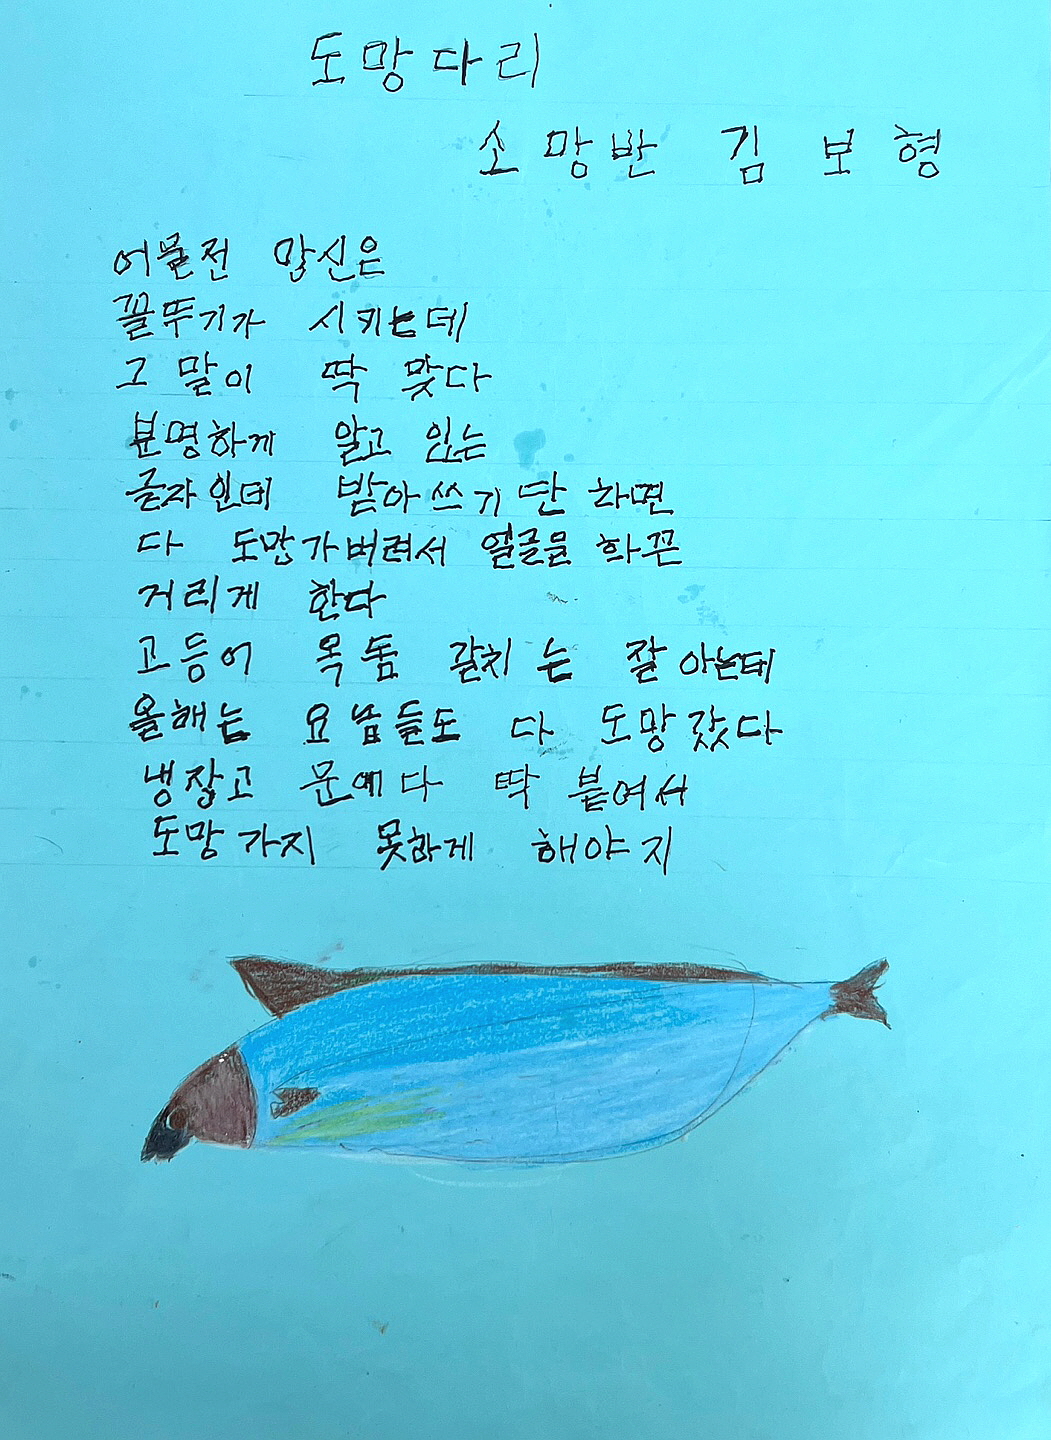 도망다리
소망반 김보형
어물전 망신은
꼴뚜기가 시키는데
그 말이 딱 맞다
분명하게 알고 있는
글자인데 받아쓰기만 하면
다 도망가버려서 얼글을 화끈
거리게 한다
고등어 옥돔 갈치는 잘 아는데
올해는 요놈들도 다 도망갔다
냉장고 문에다 딱 붙여서
도망가지 못하게 해야지